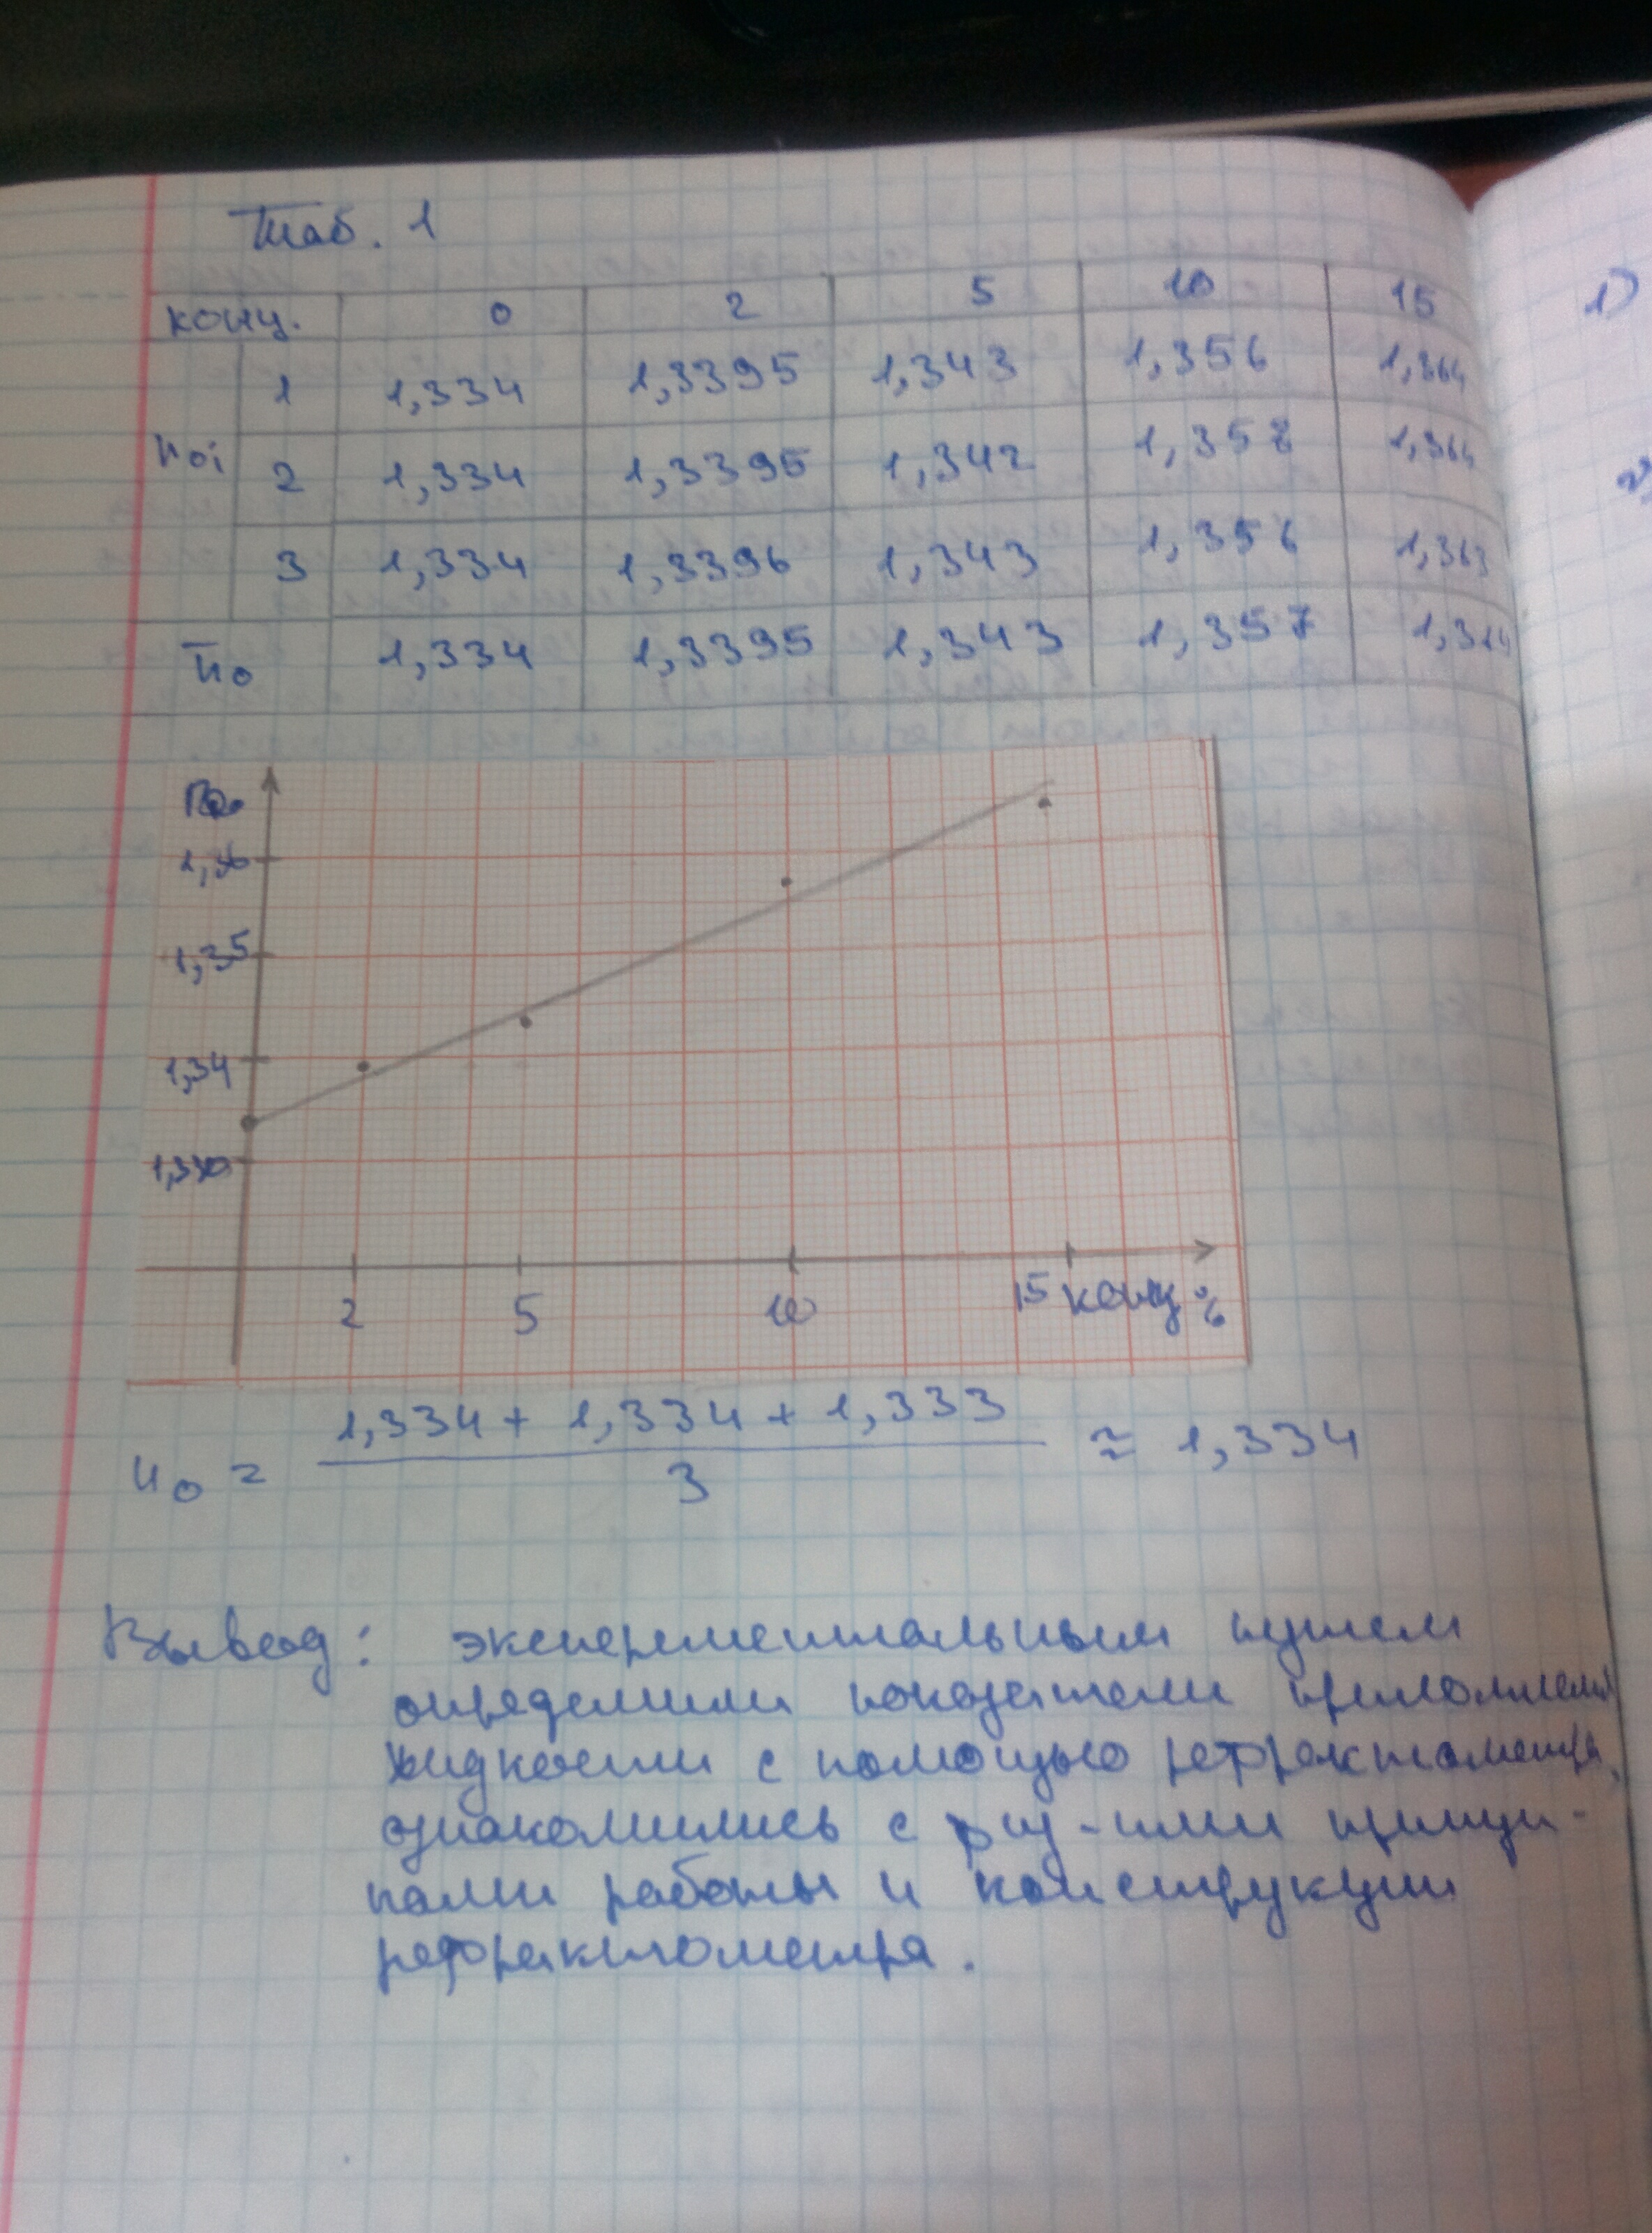 Таб. 1
конц. 0 2 5 10 15
1 1,334 1,3395 1,343 1,356 1,364
n₀ᵢ 2 1,334 1,3395 1,342 1,358 1,364
3 1,334 1,3396 1,343 1,356 1,363
n̅₀ 1,334 1,3395 1,343 1,357
1,36
1,35
1,34
1,330
2 5 10 15 конц %
n₀ = (1,334 + 1,334 + 1,333) / 3 ≈ 1,334
Вывод: эксперементальным путем
определили показатели преломления
жидкости с помощью рефрактометра,
ознакомились с физ-ими принци-
пами работы и конструкции
рефрактометра.
1)
2)